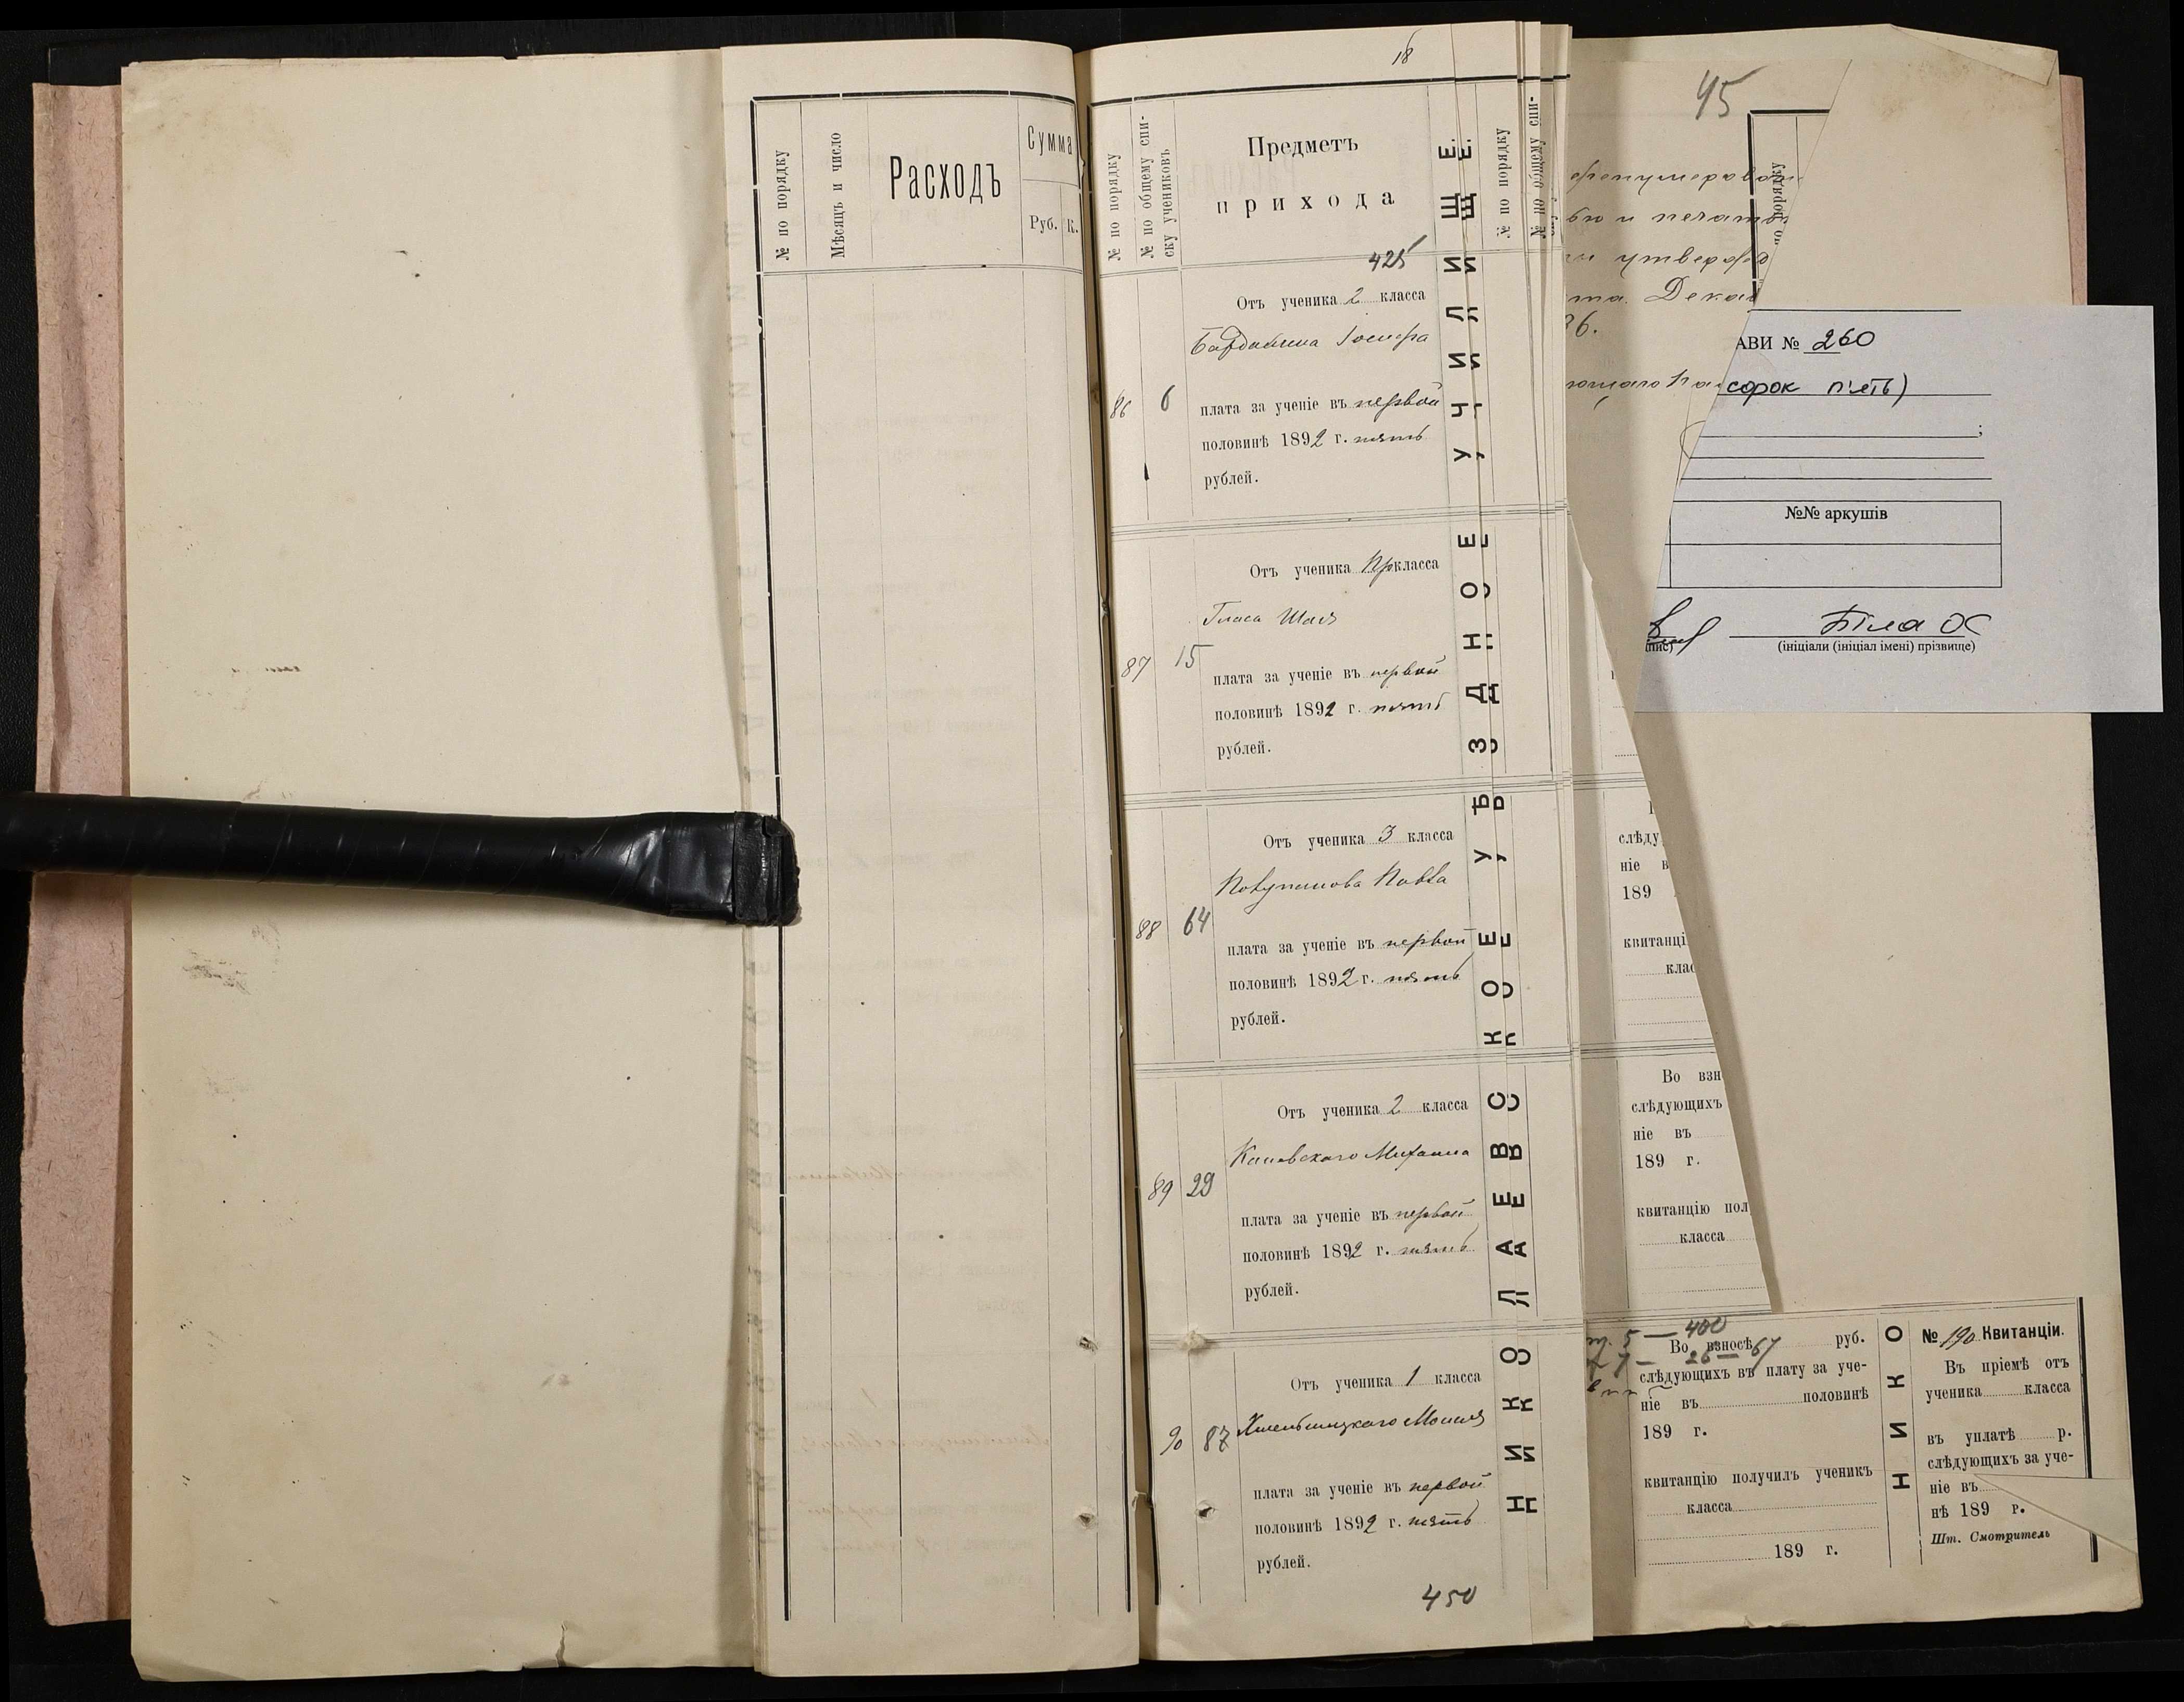 № по порядку
Мѣсяцъ и число
Расходъ
Сумма
Руб.
К.
18
№ по порядку
№ по общему спи-
ску учениковъ
Предметъ
прихода
425
86
6
Отъ ученика 2 класса
плата за ученіе въ первой
половинѣ 1892 г. пять
рублей.
87
15
Отъ ученика Пр класса
Шая
плата за ученіе въ первой
половинѣ 1892 г. пять
рублей.
88
64
Отъ ученика 3 класса
Павла
плата за ученіе въ первой
половинѣ 1892 г. пять
рублей.
89
29
Отъ ученика 2 класса
Каневскаго Михаила
плата за ученіе въ первой
половинѣ 1892 г. пять
рублей.
90
87
Отъ ученика 1 класса
Хмельницкаго
плата за ученіе въ первой
половинѣ 1892 г. пять
рублей.
450
НИКОЛАЕВСКОЕ УѢЗДНОЕ УЧИЛИЩЕ.
№ по порядку
№ по общему спи-
45
по порядку
и печать
утвержд
та. Декаб
86.
АВИ № 260
сорок п'ять)
;
№№ аркушів
Біла ОС
(ініціали (ініціал імені) прізвище)
слѣду
ніе в
189
квитанці
клас
Во взн
слѣдующихъ
ніе въ
189 г.
квитанцію пол
класса
5 — 400
7 — 26 — 67
Во взносѣ руб.
слѣдующихъ въ плату за уче-
ніе въ половинѣ
189 г.
квитанцію получилъ ученикъ
класса
189 г.
НИКО
№ 190 Квитанціи.
Въ пріемѣ отъ
ученика класса
въ уплатѣ р.
слѣдующихъ за уче-
ніе въ
нѣ 189 г.
Шт. Смотритель